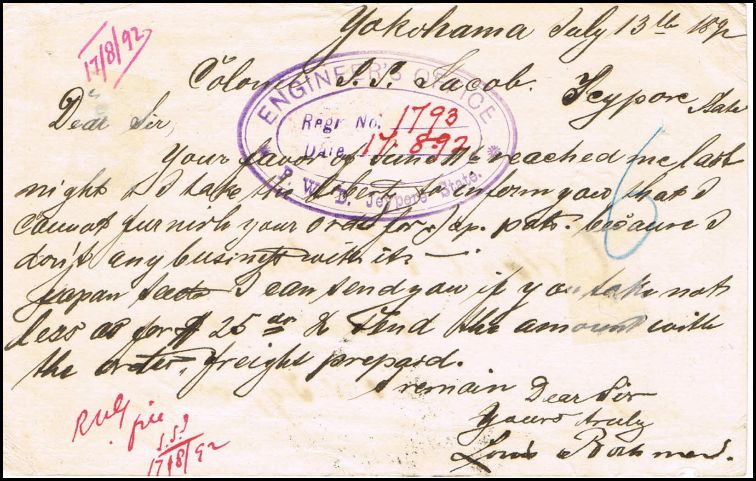 Yokohama July 13th 1892
17/8/92
Colonel S. S. Jacob.
Jeypore State
Dear Sir,
ENGINEER'S OFFICE
Regr. No. 1793
Date 17.8.92
P. W. D. Jeypore State.
6
Your favor of June reached me last
night & I take the liberty to inform you that I
cannot furnish your order for Jap. pats. because I
don't any business with it. —
Japan I can send you if you take not
less as for $ 25 & send the amount with
the order, freight prepaid.
I remain Dear Sir
Yours truly
Louis
file
S.S.J
17/8/92